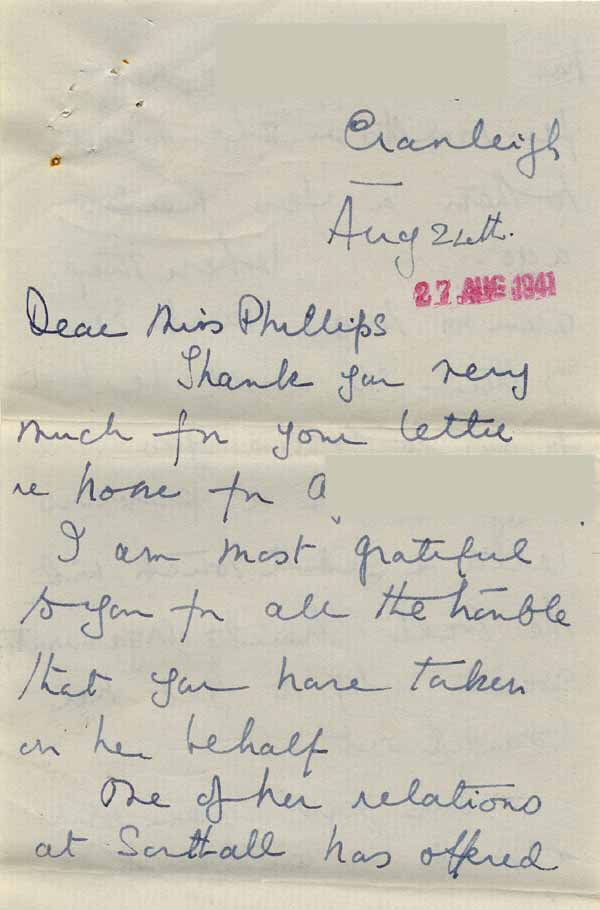 Cranleigh
Aug 24th.
27 AUG 1941
Dear Miss Phillips
Thank you very
much for your letter
re home for A
I am most grateful
to you for all the trouble
that you have taken
on her behalf
One of her relations
at Southall has offered